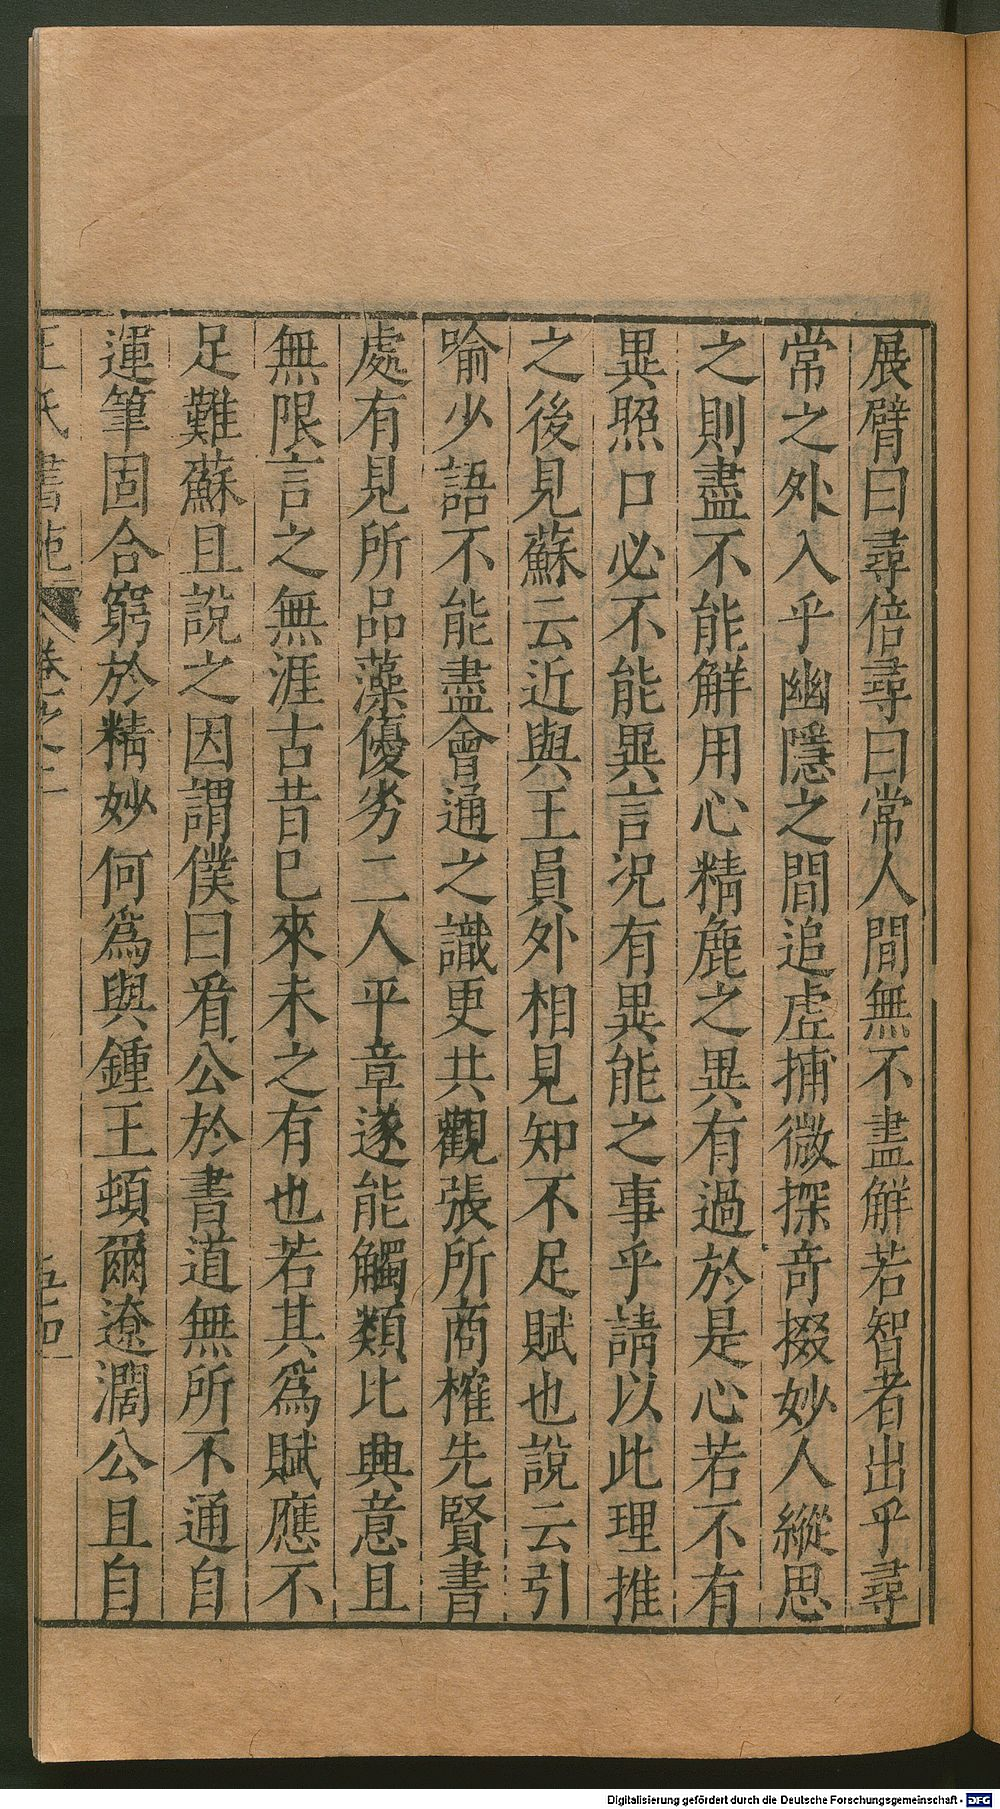 展臂曰尋倍尋曰常人間無不盡解若智者出乎尋
常之外入乎幽隱之間追虛捕微探奇掇妙人縱思
之則盡不能解用心精麁之異有過於是心若不有
異照口必不能異言况有異能之事乎請以此理推
之後見蘇云近與王員外相見知不足賦也說云引
喻少語不能盡會通之識更共觀張所商榷先賢書
處有見所品藻優劣二人平章遂能觸類比興意且
無限言之無涯古昔已來未之有也若其爲賦應不
足難蘇且說之因謂僕曰看公於書道無所不通自
運筆固合窮於精妙何爲與鍾王頓爾遼濶公且自
王氏書苑 卷之二 五十四
Digitalisierung gefördert durch die Deutsche Forschungsgemeinschaft - DFG